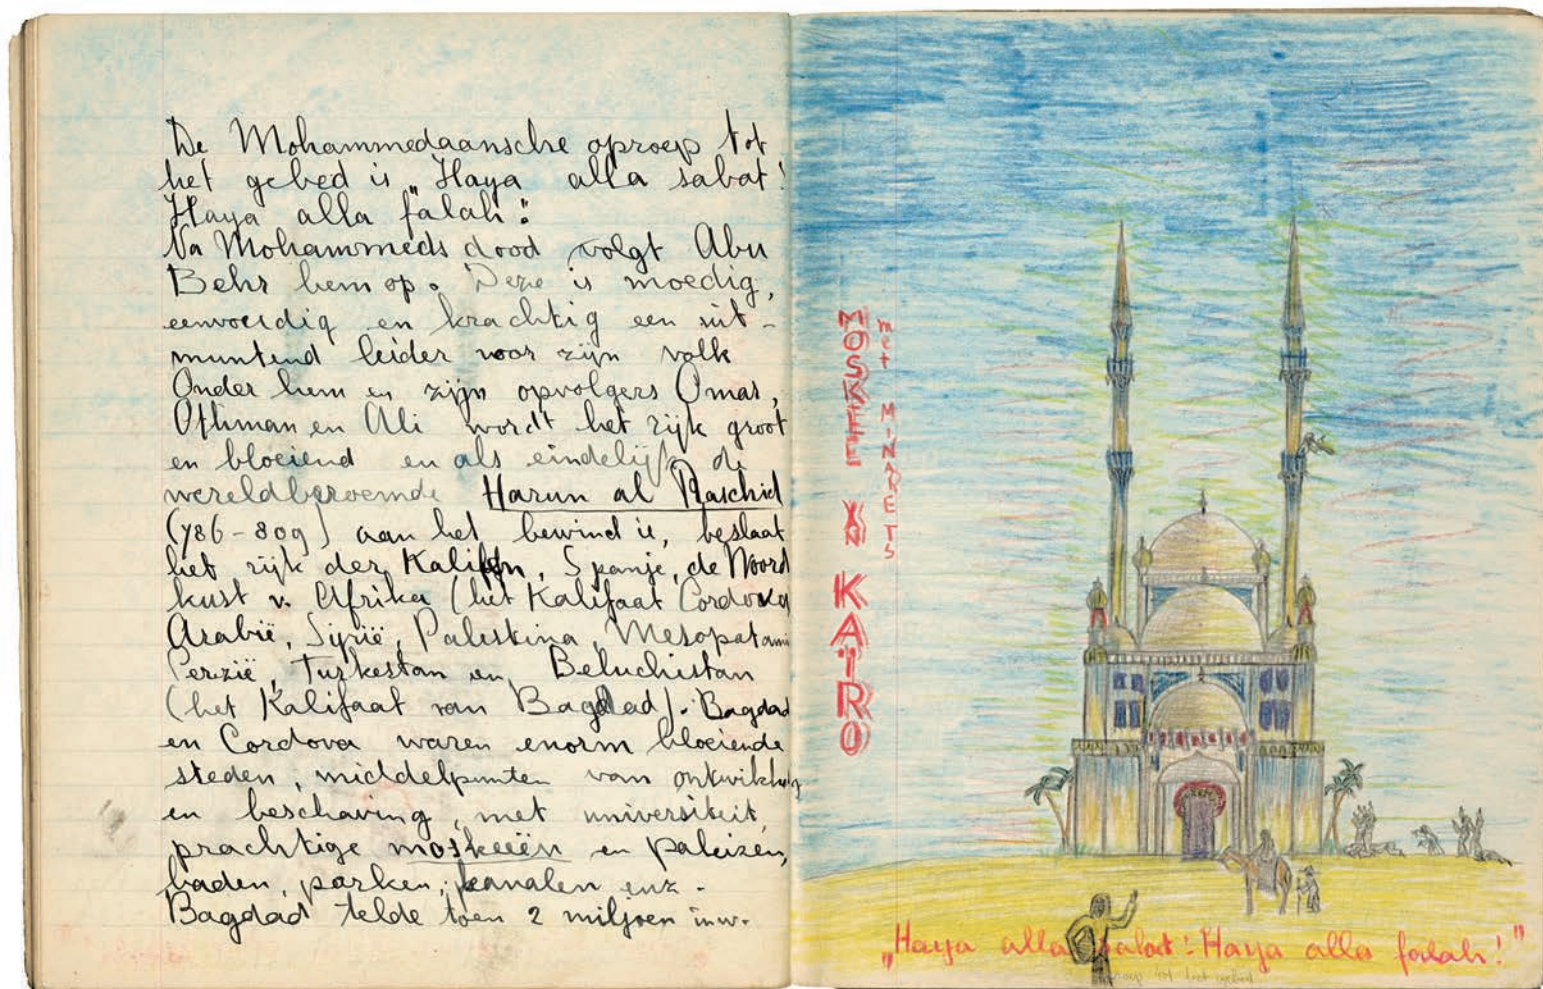 De Mohammedaansche oproep tot
het gebed is „Haya alla sabat!
Haya alla falah":
Na Mohammeds dood volgt Abu
Behr hem op. Deze is moedig,
eenvoudig en krachtig een uit-
muntend leider voor zijn volk
Onder hem en zijn opvolgers Omar,
Othman en Ali wordt het rijk groot
en bloeiend en als eindelijk de
wereldberoemde Harun al Raschid
(786-809) aan het bewind is, beslaat
het rijk der Kalifen, Spanje, de Noord
kust v. Afrika (het Kalifaat Cordova
Arabië, Syrië, Palestina, Mesopotami
Perzië, Turkestan en Beluchistan
(het Kalifaat van Bagdad). Bagdad
en Cordova waren enorm bloeiende
steden, middelpunten van
en beschaving, met universiteit,
prachtige moskeeën en paleizen,
baden, parken, kanalen enz.
Bagdad telde toen 2 miljoen inw.
MOSKEE IN KAÏRO
met MINARETS
„Haya alla salat! Haya alla falah!"
oproep tot het gebed